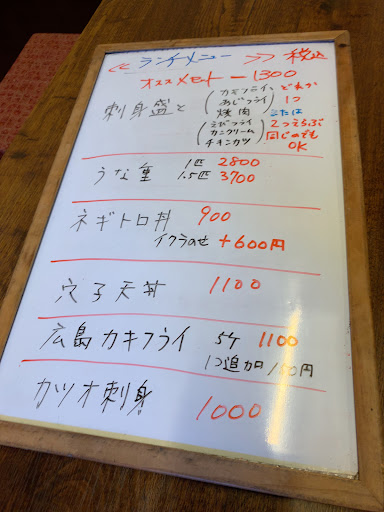 ≪ ランチメニュー ≫ 税込
オススメセット ー 1300
刺身盛と
(カキフライ、あじフライ 焼肉) どれか1つ
または
(えびフライ カニクリーム チキンカツ) 2つえらぶ 同じのでもOK
うな重 1匹 2800
1.5匹 3700
ネギトロ丼 900
イクラのせ +600円
穴子天丼 1100
広島カキフライ 5ケ 1100
1つ追加 150円
カツオ刺身 1000